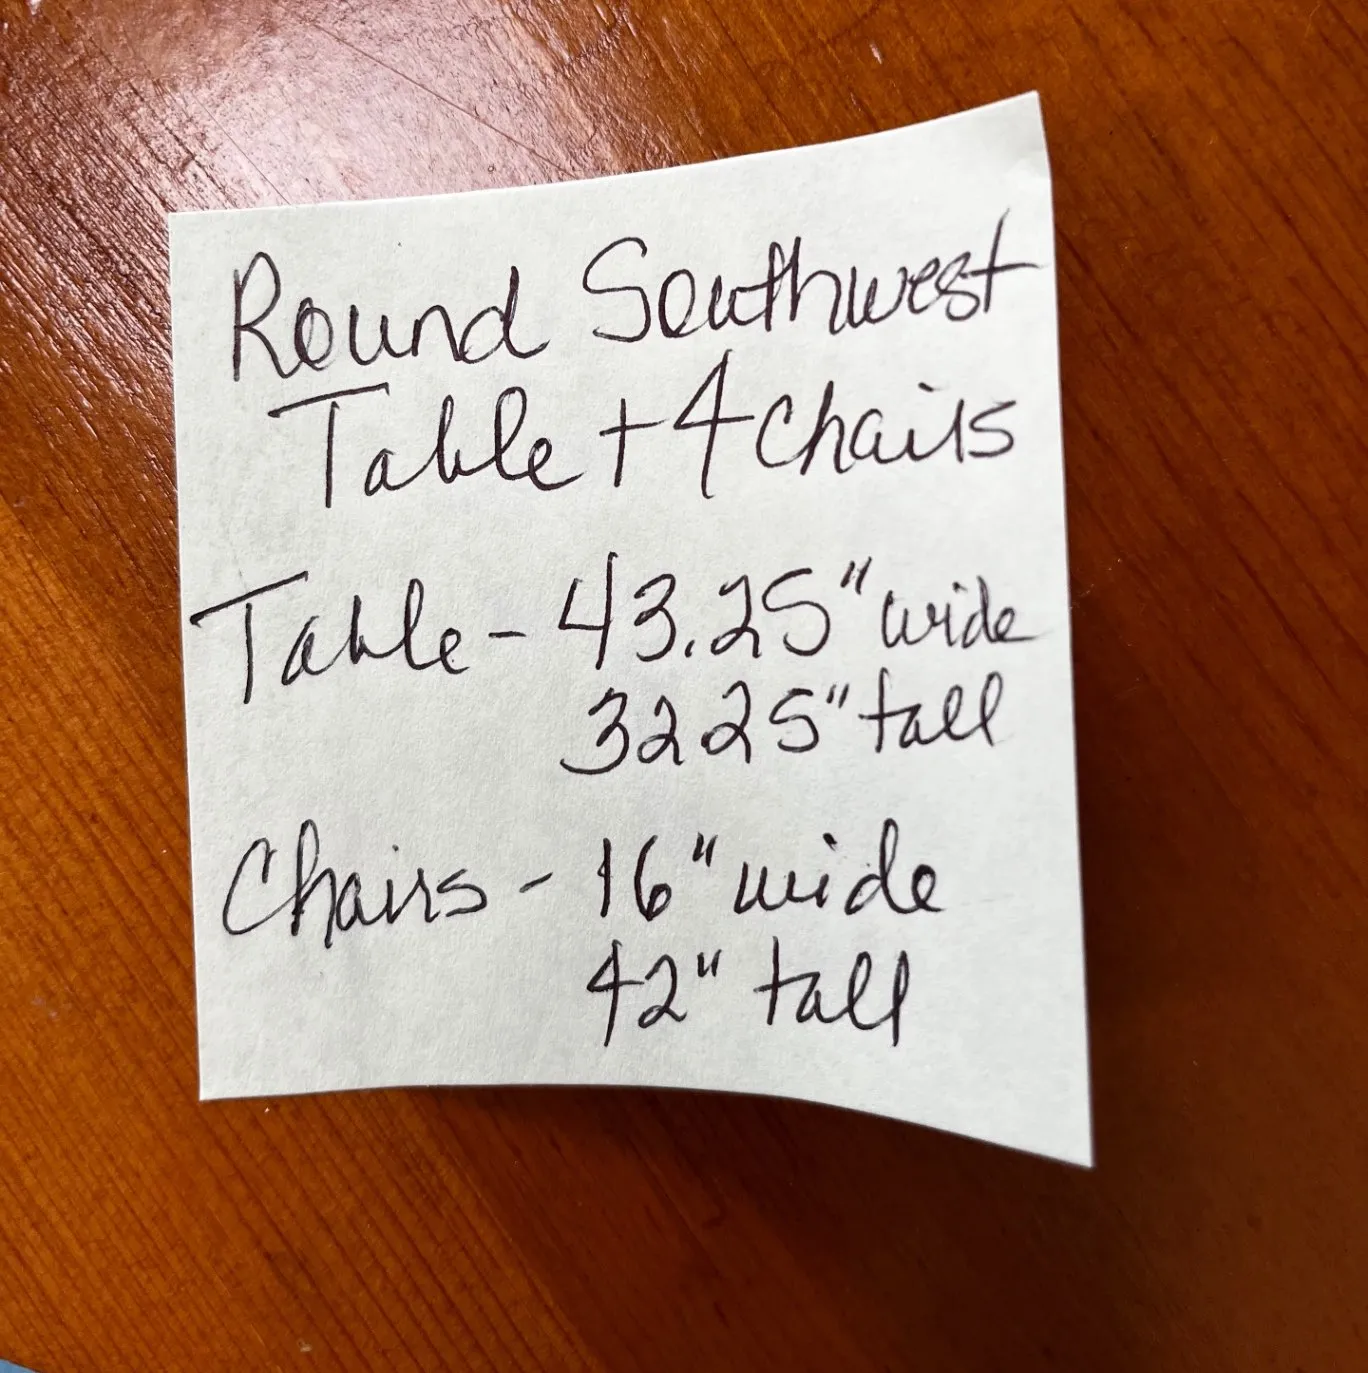 Round Southwest
Table + 4 Chairs
Table - 43.25" wide
32.25" tall
Chairs - 16" wide
42" tall